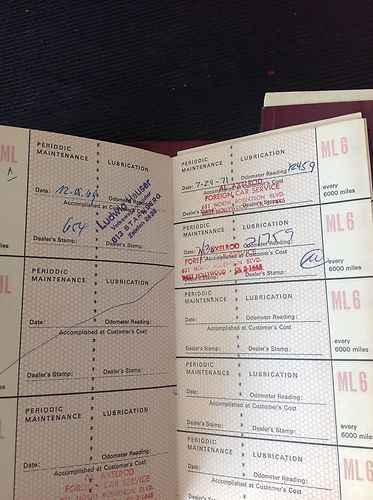 ML
PERIODIC
MAINTENANCE
LUBRICATION
Date:
Odometer Reading:
Accomplished at Customer's Cost
654
Dealer's Stamp:
Ludwig Heuser
813 STARNBERG
Telefon
PERIODIC
MAINTENANCE
LUBRICATION
Date:
Odometer Reading:
Accomplished at Customer's Cost
Dealer's Stamp:
Dealer's Stamp:
PERIODIC
MAINTENANCE
LUBRICATION
Date:
Odometer Reading:
Accomplished at Customer's Cost
AL AXELROD
FOREIGN CAR SERVICE
631 NORTH ROBERTSON BLVD.
PERIODIC
MAINTENANCE
LUBRICATION
ML 6
Date: 7-29-71
Odometer Reading: 12459
AL AXELROD
FOREIGN CAR SERVICE
631 NORTH ROBERTSON BLVD.
WEST HOLLYWOOD
every
6000 miles
PERIODIC
MAINTENANCE
LUBRICATION
ML 6
AXELROD
Accomplished at Customer's Cost
631
BLVD.
WEST HOLLYWOOD
every
6000 miles
PERIODIC
MAINTENANCE
LUBRICATION
ML 6
Date:
Odometer Reading:
Accomplished at Customer's Cost
Dealer's Stamp:
Dealer's Stamp:
every
6000 miles
PERIODIC
MAINTENANCE
LUBRICATION
ML 6
Date:
Odometer Reading:
Accomplished at Customer's Cost
Dealer's Stamp:
Dealer's Stamp:
every
6000 miles
PERIODIC
MAINTENANCE
LUBRICATION
ML 6
Date:
Odometer Reading:
Accomplished at Customer's Cost